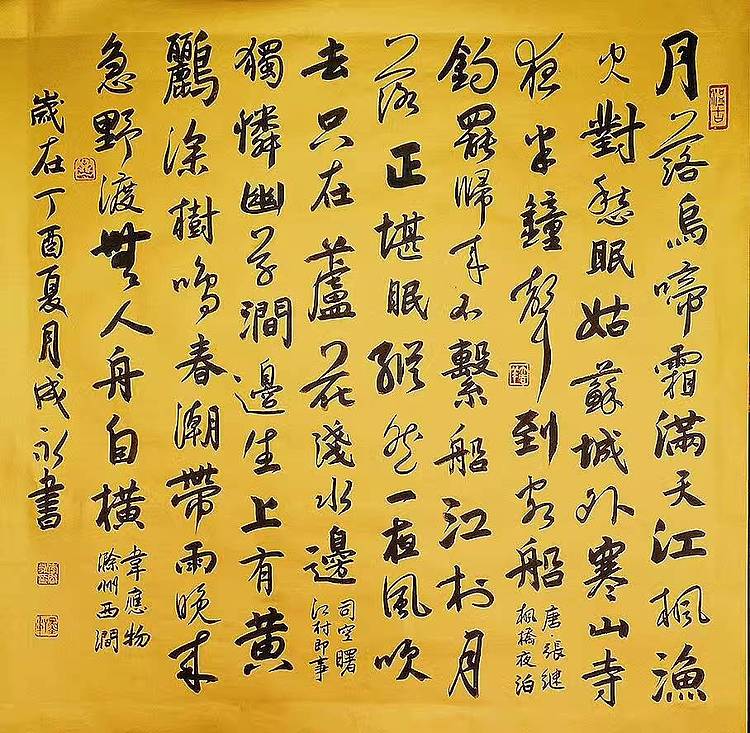 月落烏啼霜滿天江楓漁
火對愁眠姑蘇城外寒山寺
夜半鐘聲到客船
唐·張繼
楓橋夜泊
釣罷歸來不繫船江村月
落正堪眠縱然一夜風吹
去只在蘆花淺水邊
司空曙
江村即事
獨憐幽草澗邊生上有黃
鸝深樹鳴春潮帶雨晚來
急野渡無人舟自橫
韋應物
滁州西澗
歲在丁酉夏月成永書